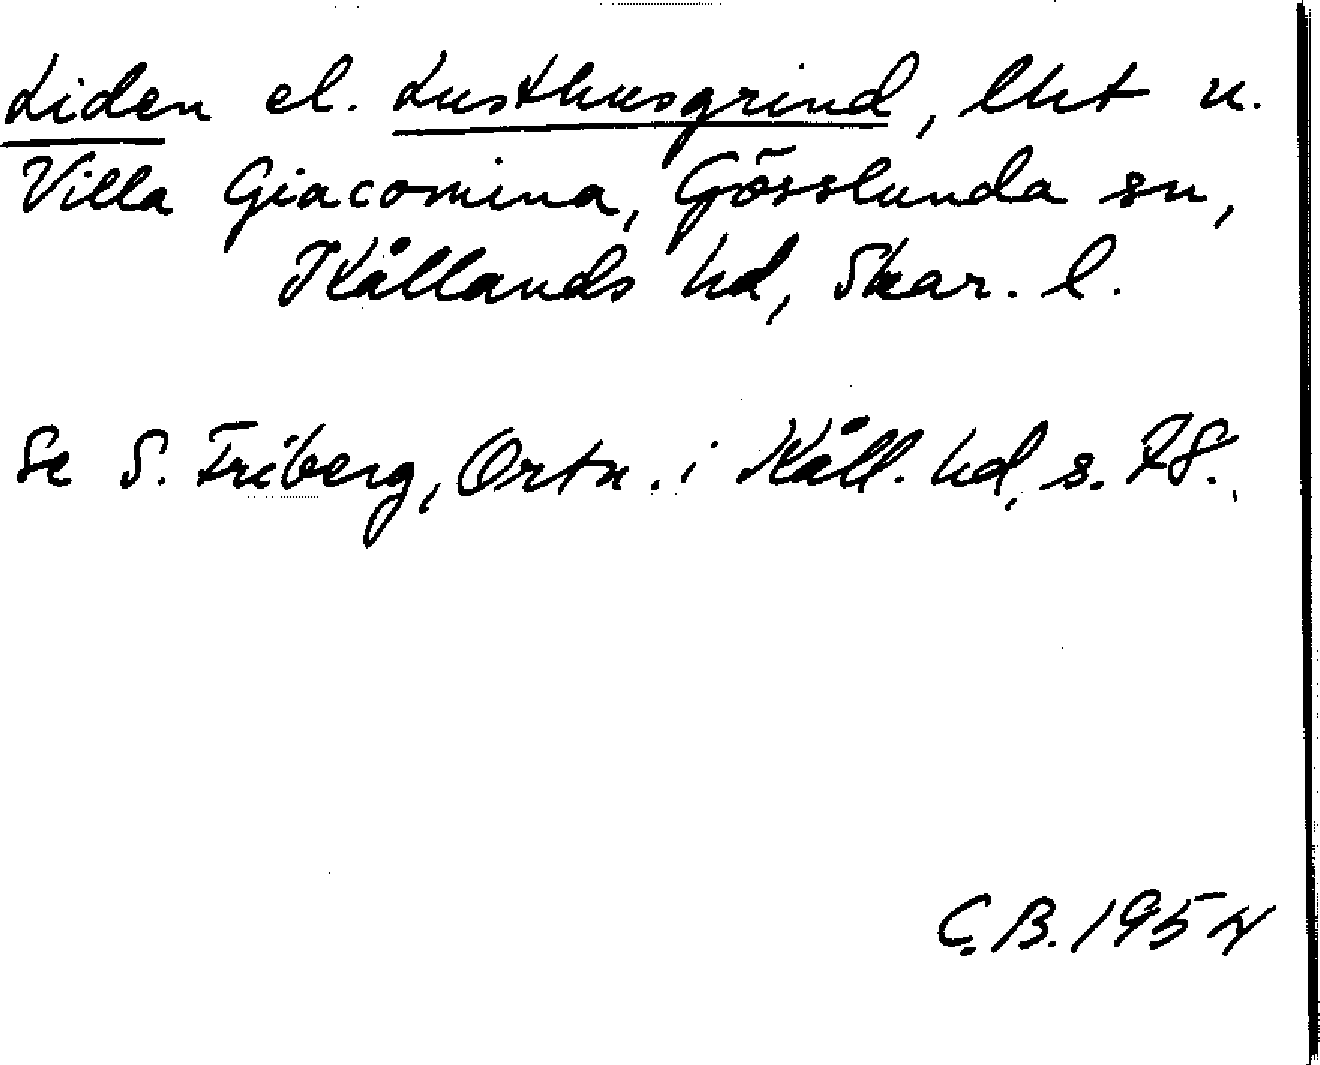 Liden el. Lusthusgrind, lht u.
Villa Giacomina, Gösslunda sn,
Kållands hd, Skar. l.
Se S. Friberg, Ortn. i Kåll. hd, s. 78.
C.B. 1954